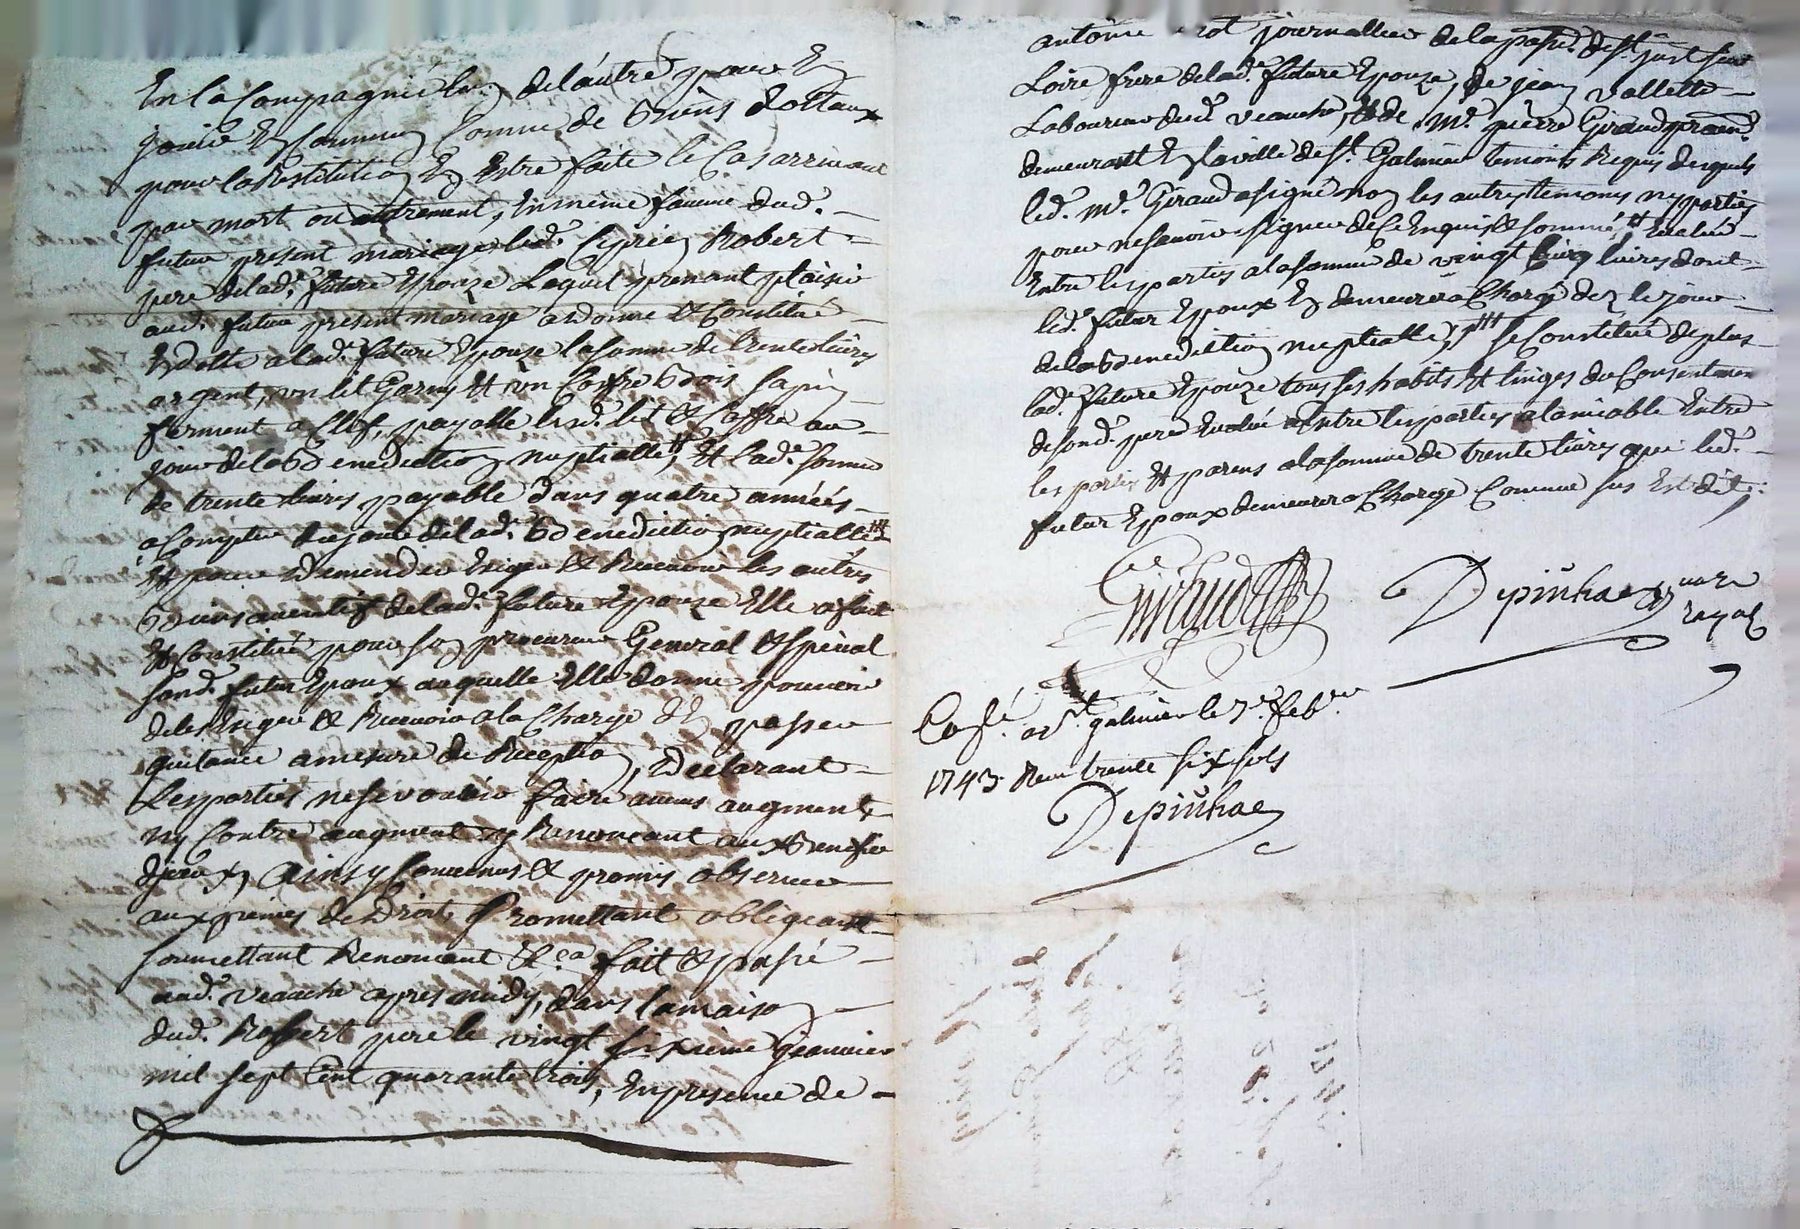 En la Compagnie l'un de l'autre pour En
jouir Et commun Comme de biens dottaux
pour la Restitution En Estre faite le Cas arrivant
par mort ou autrement, En même faveur dud.
futur present mariage led. Ciprien Robert
pere de lad. future Epouze Lequel prenant plaisir
aud. futur present mariage a donné & Constitué
En dotte a lad. future Epouze la somme de trente livres
argent, un lit Garny Et un Coffre bois sapin
ferment a Clef, payable lesd. lit & Coffre au
jour de la benediction nuptialle, Et lad. somme
de trente livres payable dans quatre années
a Compter du jour de lad. benediction nuptialle
Et pour demender Exiger & Recevoir les autres
biens mentis de lad. future Epouze Elle a fait
Et Constitué pour son procureur General & special
sond. futur Epoux auquelle Elle donne pouvoir
de les Exiger & Recevoir a la Charge d'En passer
quitance a mesure de Reception, Declarant
Les parties ne se vouloir faire aucuns augment
ny Contre augment y Renonceant aux Benefice
d'jceux, Ainsy Convenus & promis observer
aux peines de Droit, Promettant obligeant
soumettant Renonceant &ca fait & passé
aud. Veauche apres midy, dans la maison
dud. Robert pere le vingt sixieme Jeanvier
mil sept Cent quarante trois, En presence de
antoine journallier de la parse. de st. just sur
Loire frere de lad. future Epouze, de jean Vallette
Laboureur dud. Veauche, Et de Mr. pierre Giraud
demeurant En la ville de st. Galmier temoins Requis desquels
led. Mr. Giraud a signé non les autres temoins ny parties
pour ne sçavoir signer de Ce Enquis & sommé, Evalué
Entre les parties a la somme de vingt Cinq livres dont
led. futur Epoux En demeurera Chargé dez le jour
de la benediction nuptialle, se Constitué de plus
lad. future Epouze tous ses habits Et linges du Consentement
de sond. pere Evalué Entre les parties a l'amiable Entre
les parties Et parens a la somme de trente livres que led.
futur Epoux demeurera Chargé Comme sus Est dit,
Giraud Depinhac nore
royal
Con.lé a st. galmier le 7e. febvr.
1743. Reçu trente six sols
Depinhac